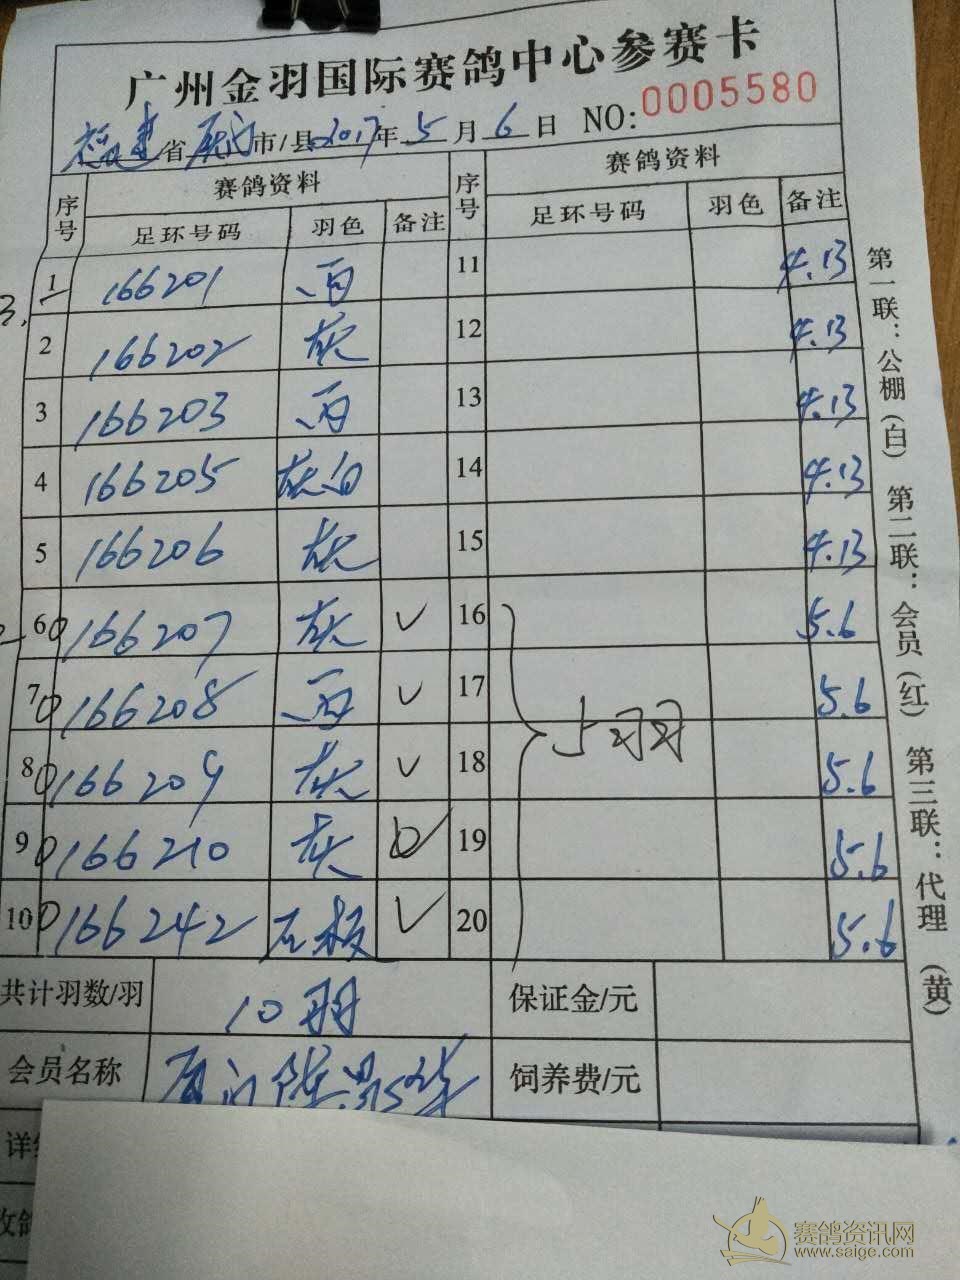 广州金羽国际赛鸽中心参赛卡
福建省厦门市/县2017年5月6日 NO:0005580
序号 赛鸽资料 序号 赛鸽资料
足环号码 羽色 备注 足环号码 羽色 备注
1 166201 11 4.13
2 166202 灰 12 4.13
3 166203 13 4.13
4 166205 灰白 14 4.13
5 166206 灰 15 4.13
6 166207 灰 ✓ 16 5.6
7 166208 ✓ 17 5.6
5羽
8 166209 灰 ✓ 18 5.6
9 166210 灰 ✓ 19 5.6
10 166242 石板 ✓ 20 5.6
共计羽数/羽 10羽 保证金/元
会员名称 厦门 饲养费/元
详细
收鸽
第一联：公棚(白) 第二联：会员(红) 第三联：代理(黄)
赛鸽资讯网
www.saige.com